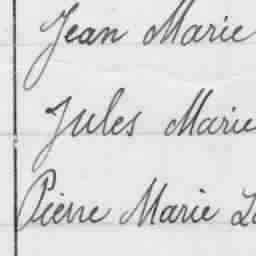 Jean Marie
Jules Marie
Pierre Marie